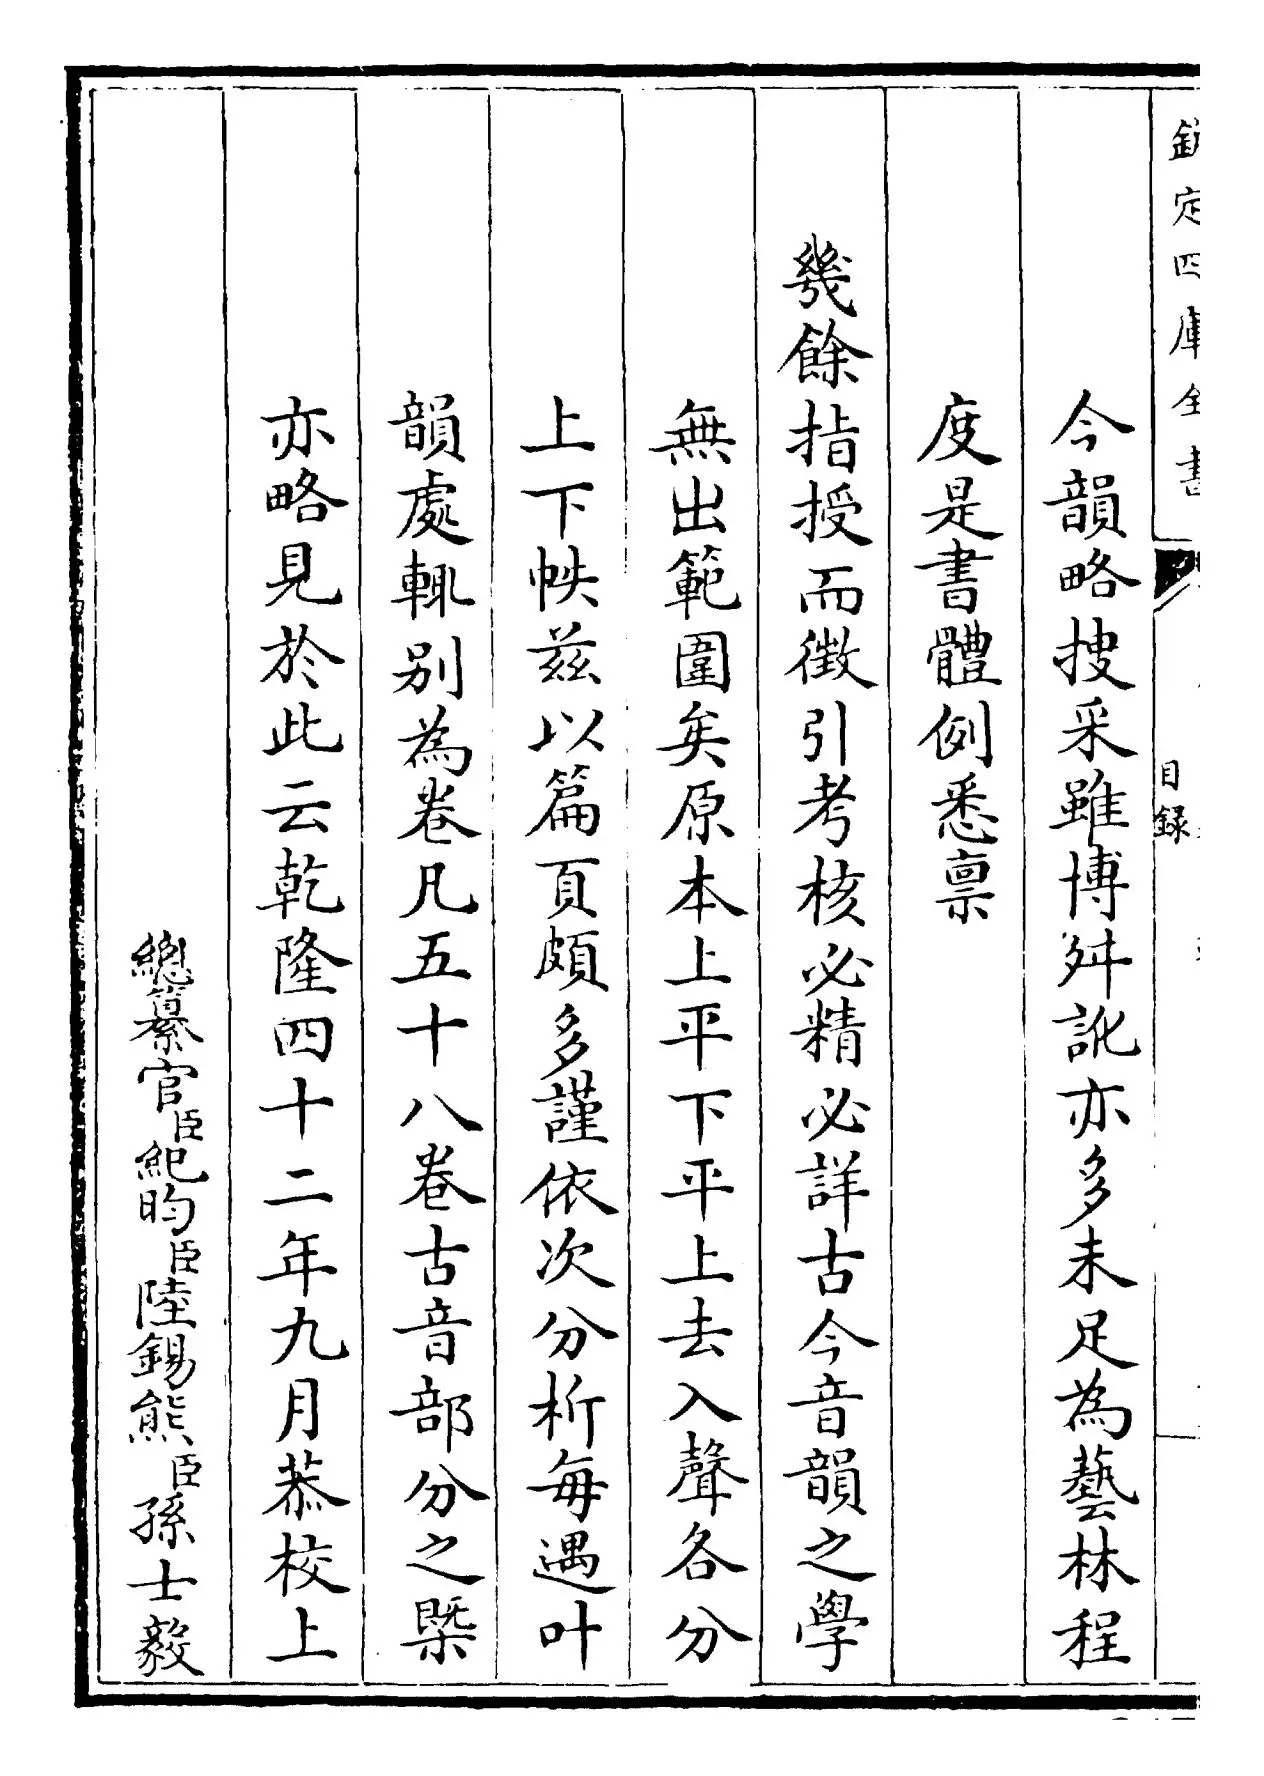 欽定四庫全書
目錄
今韻略搜采雖博舛訛亦多未足為藝林程
度是書體例悉禀
幾餘指授而徵引考核必精必詳古今音韻之學
無出範圍矣原本上平下平上去入聲各分
上下帙兹以篇頁頗多謹依次分析每遇叶
韻處輒别為卷凡五十八卷古音部分之槩
亦略見於此云乾隆四十二年九月恭校上
總纂官臣紀昀臣陸錫熊臣孫士毅